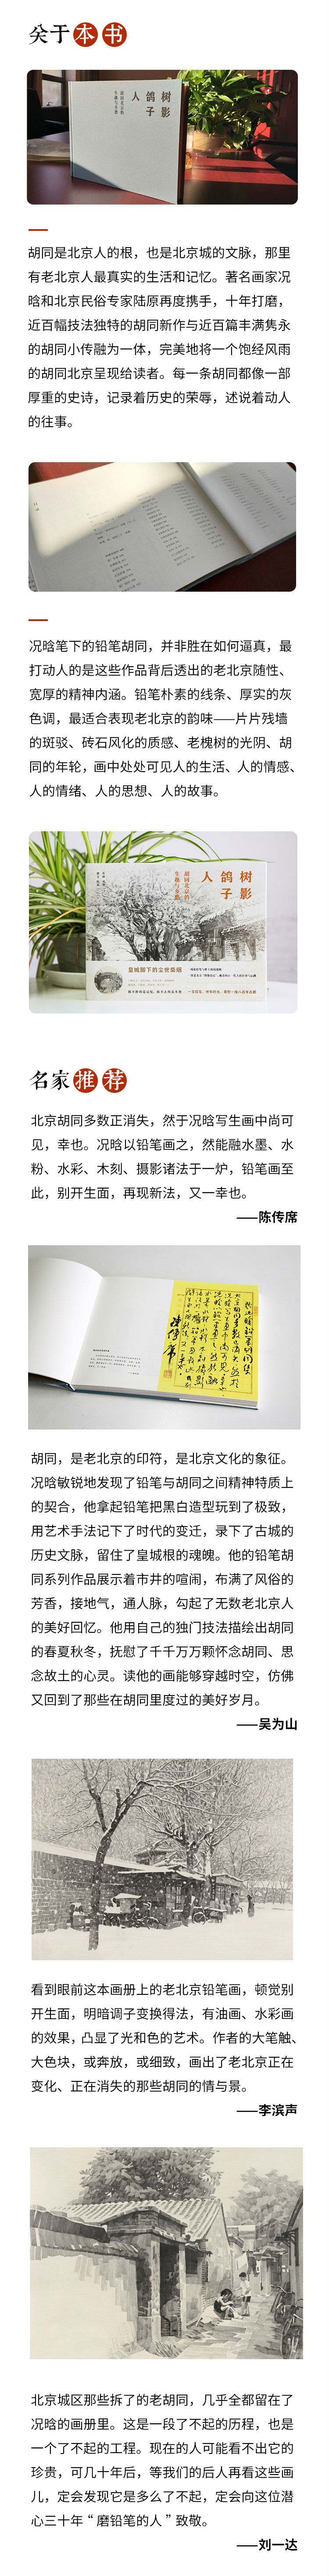 关于本书
树影
鸽子
人
胡同北京的
生趣与乡愁
胡同是北京人的根，也是北京城的文脉，那里
有老北京人最真实的生活和记忆。著名画家况
晗和北京民俗专家陆原再度携手，十年打磨，
近百幅技法独特的胡同新作与近百篇丰满隽永
的胡同小传融为一体，完美地将一个饱经风雨
的胡同北京呈现给读者。每一条胡同都像一部
厚重的史诗，记录着历史的荣辱，述说着动人
的往事。
况晗笔下的铅笔胡同，并非胜在如何逼真，最
打动人的是这些作品背后透出的老北京随性、
宽厚的精神内涵。铅笔朴素的线条、厚实的灰
色调，最适合表现老北京的韵味——片片残墙
的斑驳、砖石风化的质感、老槐树的光阴、胡
同的年轮，画中处处可见人的生活、人的情感、
人的情绪、人的思想、人的故事。
树影
鸽子
人
胡同北京的
生趣与乡愁
皇城脚下的尘世桑烟
名家推荐
北京胡同多数正消失，然于况晗写生画中尚可
见，幸也。况晗以铅笔画之，然能融水墨、水
粉、水彩、木刻、摄影诸法于一炉，铅笔画至
此，别开生面，再现新法，又一幸也。
——陈传席
胡同，是老北京的印符，是北京文化的象征。
况晗敏锐地发现了铅笔与胡同之间精神特质上
的契合，他拿起铅笔把黑白造型玩到了极致，
用艺术手法记下了时代的变迁，录下了古城的
历史文脉，留住了皇城根的魂魄。他的铅笔胡
同系列作品展示着市井的喧闹，布满了风俗的
芳香，接地气，通人脉，勾起了无数老北京人
的美好回忆。他用自己的独门技法描绘出胡同
的春夏秋冬，抚慰了千千万万颗怀念胡同、思
念故土的心灵。读他的画能够穿越时空，仿佛
又回到了那些在胡同里度过的美好岁月。
——吴为山
看到眼前这本画册上的老北京铅笔画，顿觉别
开生面，明暗调子变换得法，有油画、水彩画
的效果，凸显了光和色的艺术。作者的大笔触、
大色块，或奔放，或细致，画出了老北京正在
变化、正在消失的那些胡同的情与景。
——李滨声
北京城区那些拆了的老胡同，几乎全都留在了
况晗的画册里。这是一段了不起的历程，也是
一个了不起的工程。现在的人可能看不出它的
珍贵，可几十年后，等我们的后人再看这些画
儿，定会发现它是多么了不起，定会向这位潜
心三十年“磨铅笔的人”致敬。
——刘一达